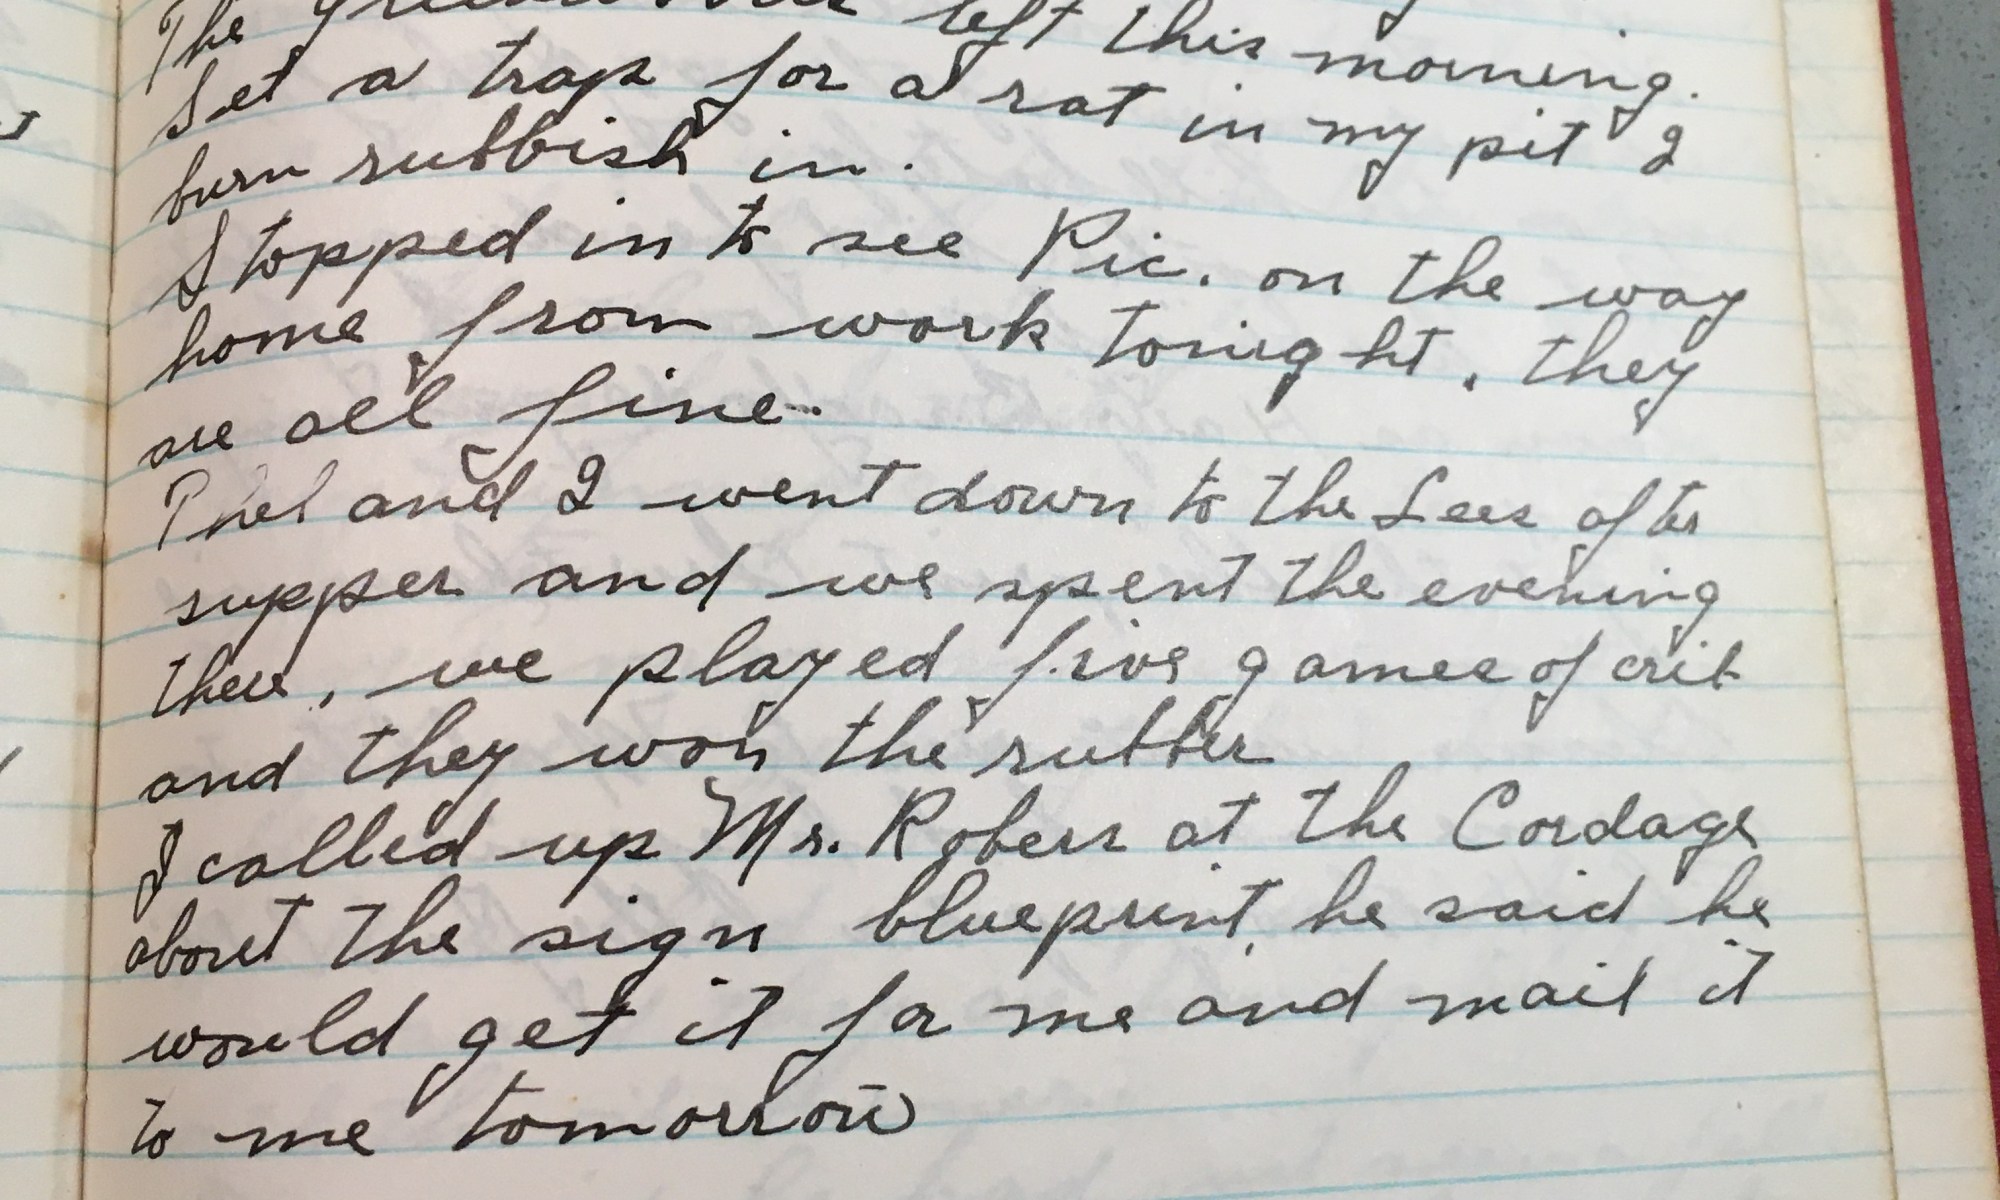 The left this morning.
Set a trap for a rat in my pit I
burn rubbish in.
Stopped in to see Pic. on the way
home from work tonight, they
are all fine.
Phel and I went down to the Lees after
supper and we spent the evening
there, we played five games of crib
and they won the rubber
I called up Mr. Robers at the Cordage
about the sign blueprint, he said he
would get it for me and mail it
to me tomorrow